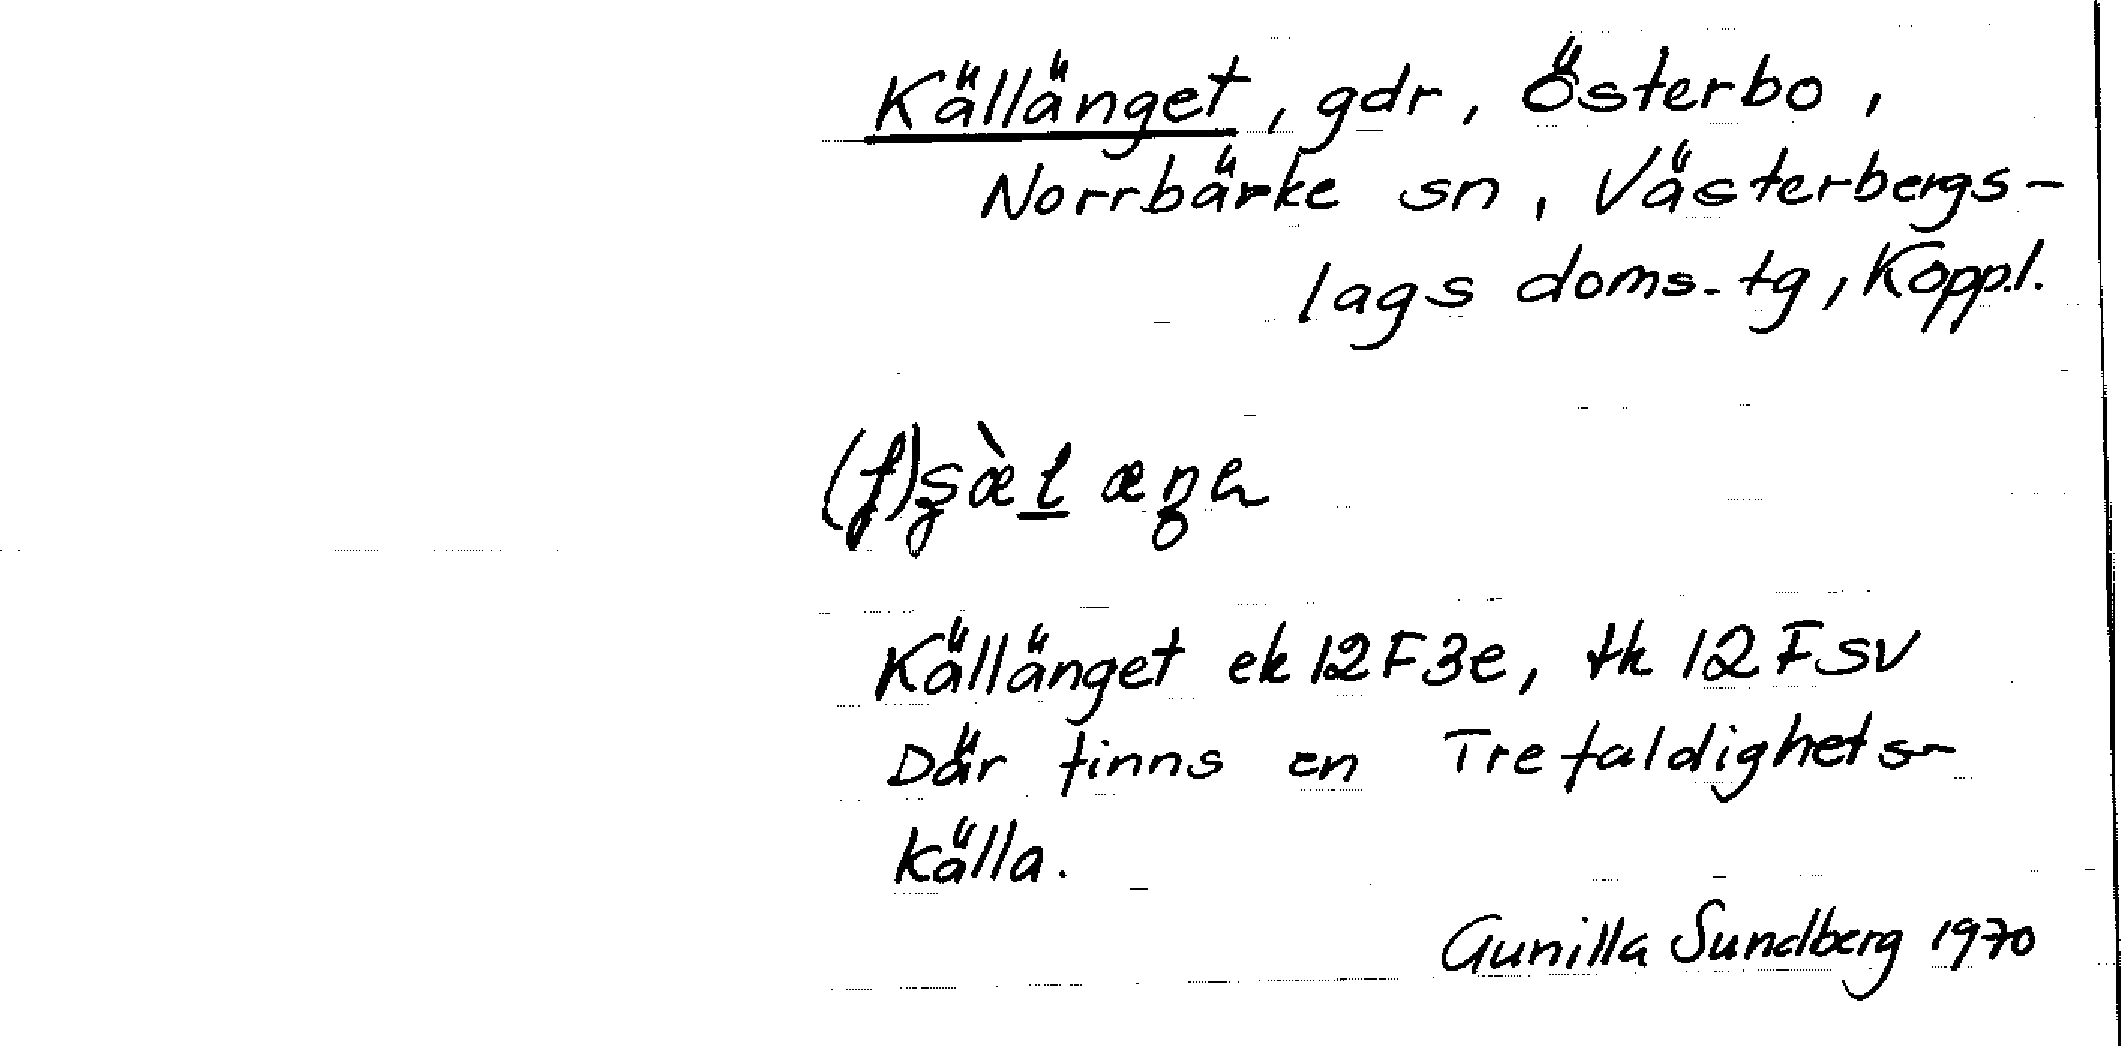 Källänget, gdr, Österbo,
Norrbärke sn, Västerbergs-
lags doms. tg, Koppl.
Källänget ek 12F3e, tk 12F SV
Där finns en Trefaldighets-
källa.
Gunilla Sundberg 1970